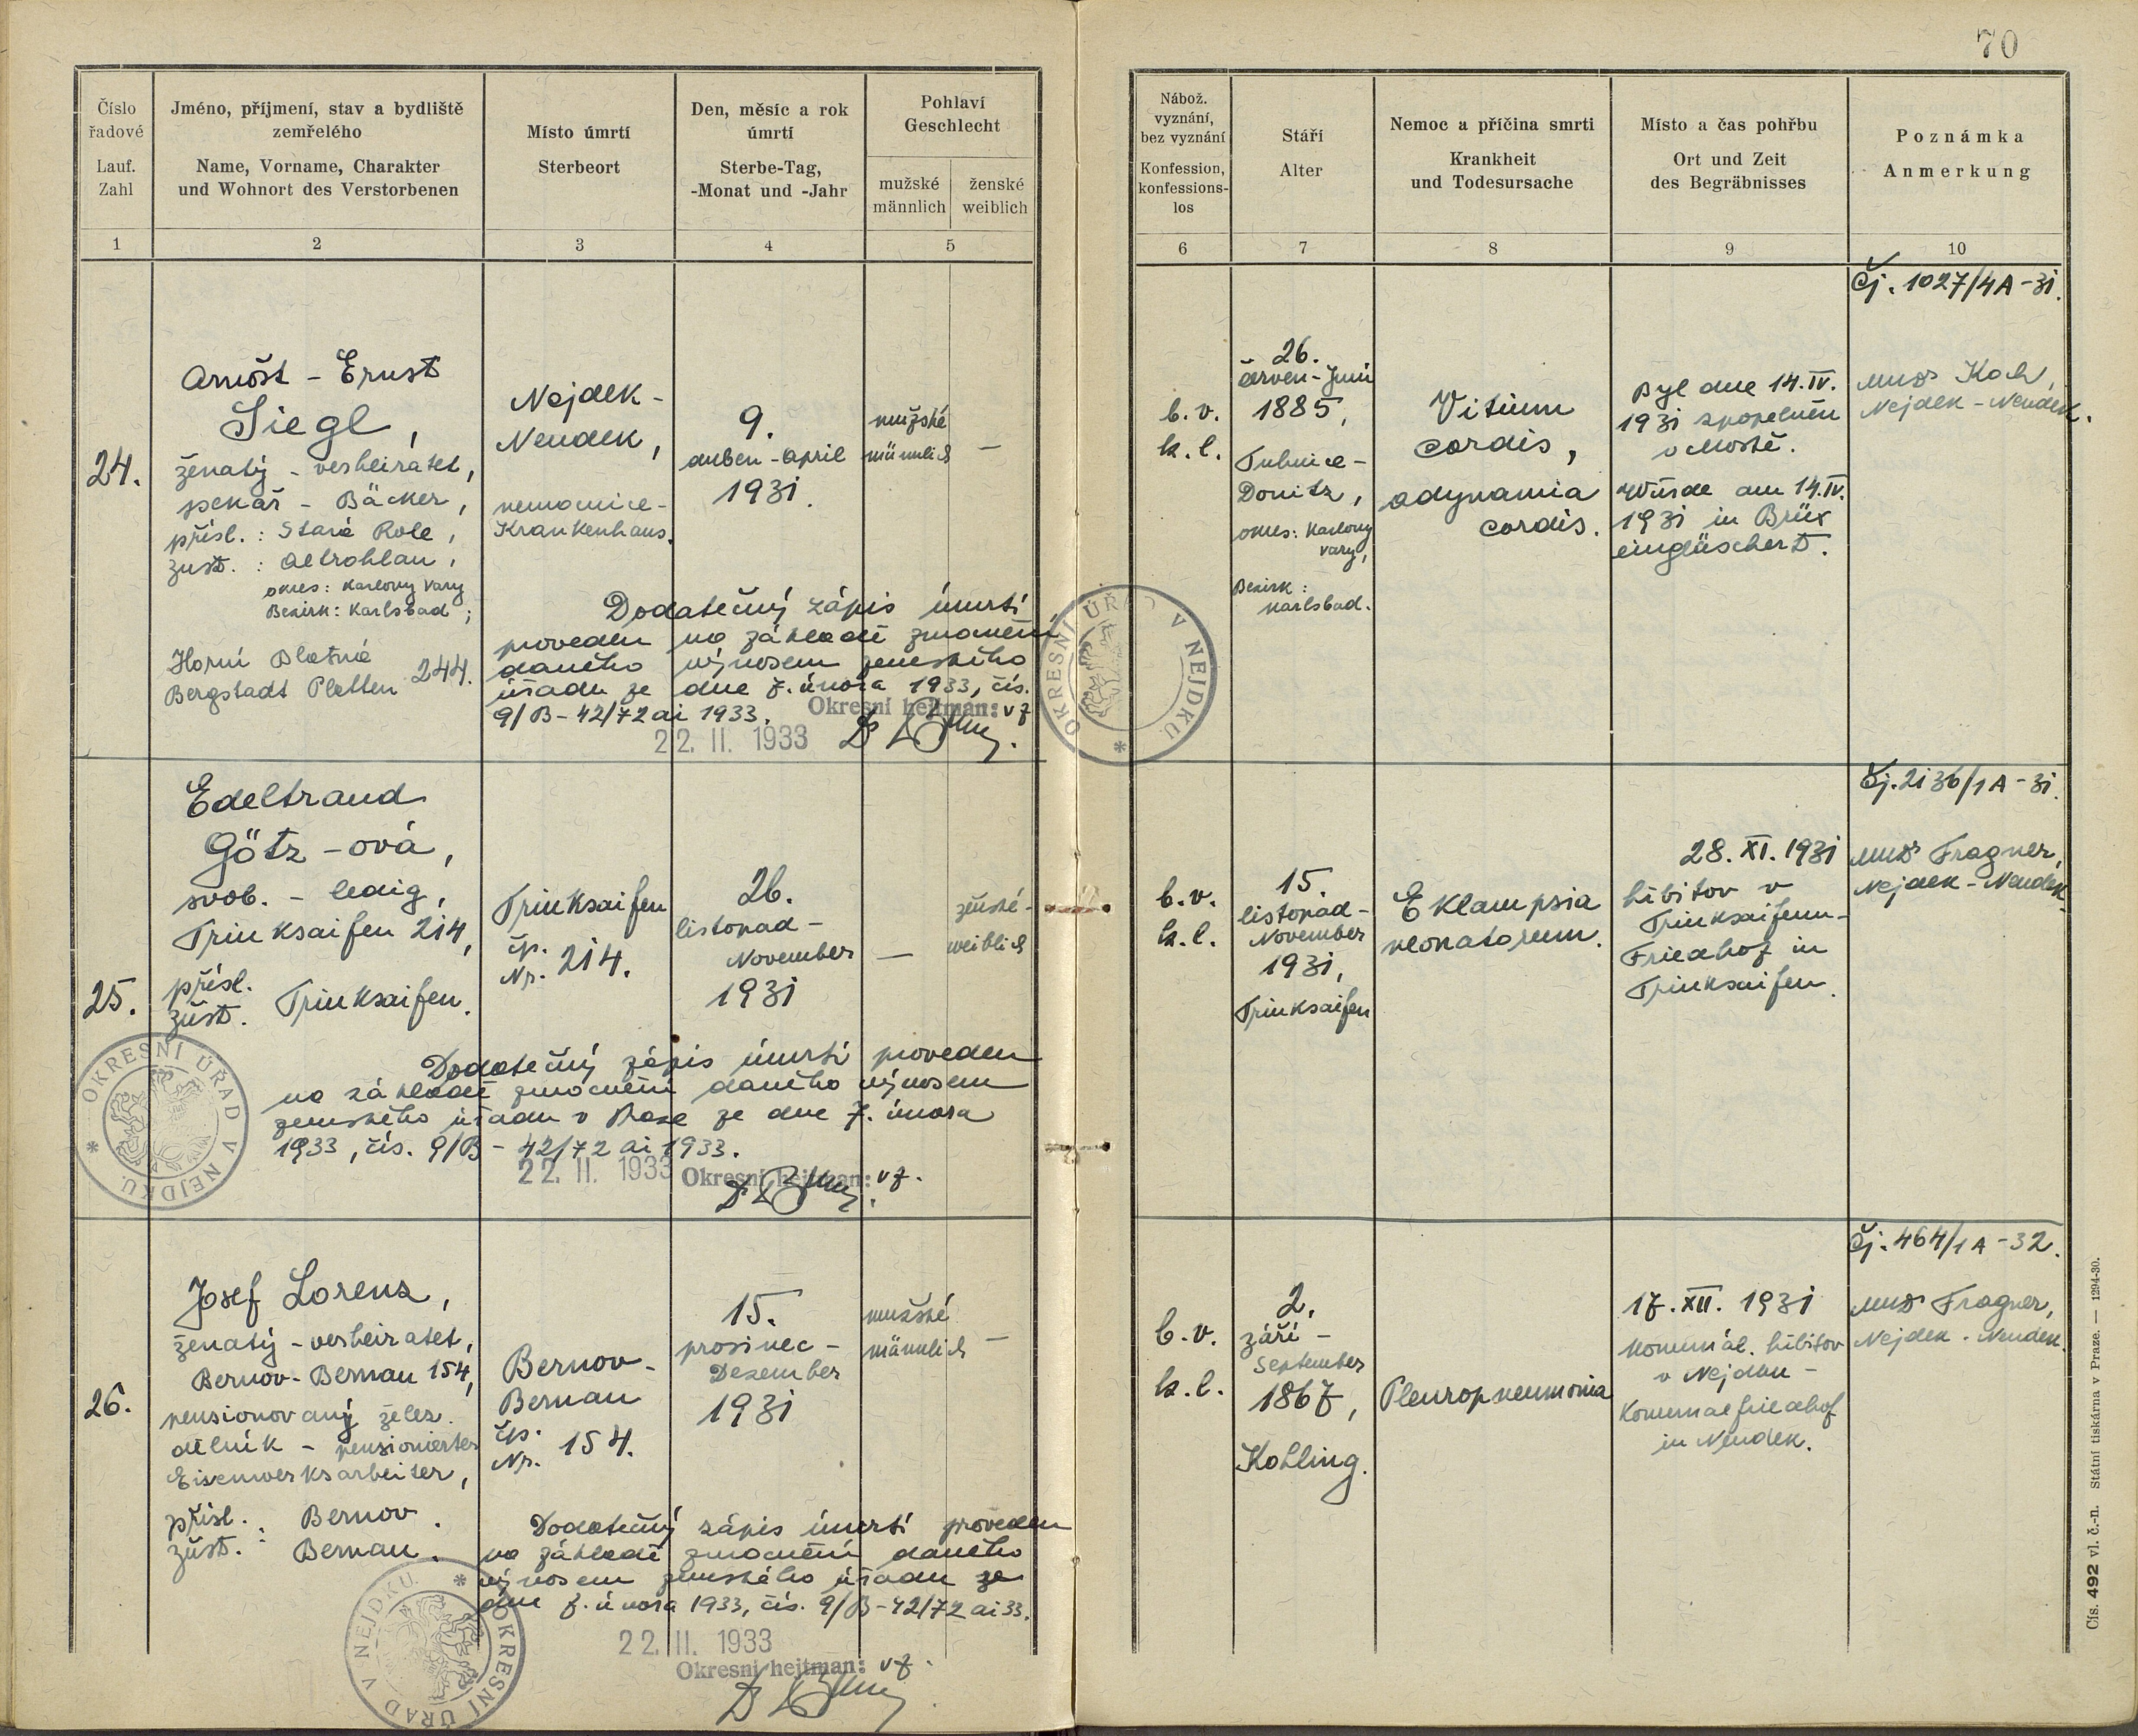 70
Číslo
řadové
Lauf.
Zahl
Jméno, příjmení, stav a bydliště
zemřelého
Name, Vorname, Charakter
und Wohnort des Verstorbenen
Místo úmrtí
Sterbeort
Den, měsíc a rok
úmrtí
Sterbe-Tag,
-Monat und -Jahr
Pohlaví
Geschlecht
mužské
männlich
ženské
weiblich
Nábož.
vyznání,
bez vyznání
Konfession,
konfessions-
los
Stáří
Alter
Nemoc a příčina smrti
Krankheit
und Todesursache
Místo a čas pohřbu
Ort und Zeit
des Begräbnisses
Poznámka
Anmerkung
1 2 3 4 5 6 7 8 9 10
24.
Arnošt - Ernst
Siegl,
ženatý - verheiratet,
pekař - Bäcker,
přísl. : Stará Role,
zust. : Altrohlau,
okres: Karlovy Vary
Bezirk: Karlsbad;
Horní Blatná
Bergstadt Platten 244.
Nejdek -
Neudek,
nemocnice -
Krankenhaus.
9.
duben - April
1931.
mužské
männlich
—
b. v.
k. l.
26.
červen - Juni
1885,
Tuhnice -
Donitz,
okres: Karlovy
Vary,
Bezirk:
Karlsbad.
Vitium
cordis,
adynamia
cordis.
Byl dne 14. IV.
1931 zpopelněn
v Mostě.
Wurde am 14. IV.
1931 in Brüx
eingäschert.
Čj. 1027/4A-31.
MUDr Koch,
Nejdek - Neudek.
Dodatečný zápis úmrtí
proveden na základě zmocnění
daného výnosem zemského
úřadu ze dne 7. února 1933, čís.
9/B-42/72 ai 1933.
Okresní hejtman: vz
22. II. 1933
OKRESNÍ ÚŘAD V NEJDKU *
25.
Edeltraud
Götz - ová,
svob. - ledig,
Trinksaifen 214,
přísl.
zust. Trinksaifen.
Trinksaifen
čp.
Nr. 214.
26.
listopad -
November
1931
—
ženské -
weiblich
b. v.
k. l.
15.
listopad -
November
1931,
Trinksaifen
Eklampsia
neonatorum.
28. XI. 1931
hřbitov v
Trinksaifenu -
Friedhof in
Trinksaifen.
Čj. 2136/1A-31.
MUDr Fragner,
Nejdek - Neudek.
Dodatečný zápis úmrtí proveden
na základě zmocnění daného výnosem
zemského úřadu v Praze ze dne 7. února
1933, čís. 9/B - 42/72 ai 1933.
22. II. 1933 Okresní hejtman: vz.
OKRESNÍ ÚŘAD V NEJDKU *
26.
Josef Lorenz,
ženatý - verheiratet,
Bernov - Bernau 154,
pensionovaný želez.
dělník - pensionierter
Eisenwerksarbeiter,
přísl. : Bernov.
zust. : Bernau.
Bernov -
Bernau
čp.
Nr. 154.
15.
prosinec -
Dezember
1931
mužské
männlich
—
b. v.
k. l.
2.
září -
September
1867,
Kohling.
Pleuropneumonia
17. XII. 1931
komunál. hřbitov
v Nejdku -
Komunalfriedhof
in Neudek.
Čj. 464/1A-32.
MUDr Fragner,
Nejdek - Neudek.
Dodatečný zápis úmrtí proveden
na základě zmocnění daného
výnosem zemského úřadu ze
dne 7. února 1933, čís. 9/B-42/72 ai 33.
22. II. 1933
Okresní hejtman: vz.
OKRESNÍ ÚŘAD V NEJDKU *
Čís. 492 vl. č.-n. Státní tiskárna v Praze. — 1294-30.